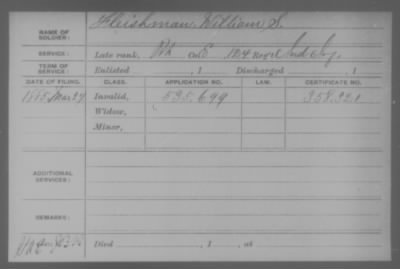 NAME OF SOLDIER: Fleishman, William S.
SERVICE: Late rank, Co. E 124 Reg't Ind Inf.
TERM OF SERVICE: Enlisted , 1 Discharged , 1
DATE OF FILING. CLASS. APPLICATION NO. LAW. CERTIFICATE NO.
Mar 27 Invalid, 535.699 358.321
Widow,
Minor,
ADDITIONAL SERVICES:
REMARKS:
Died , 1 , at